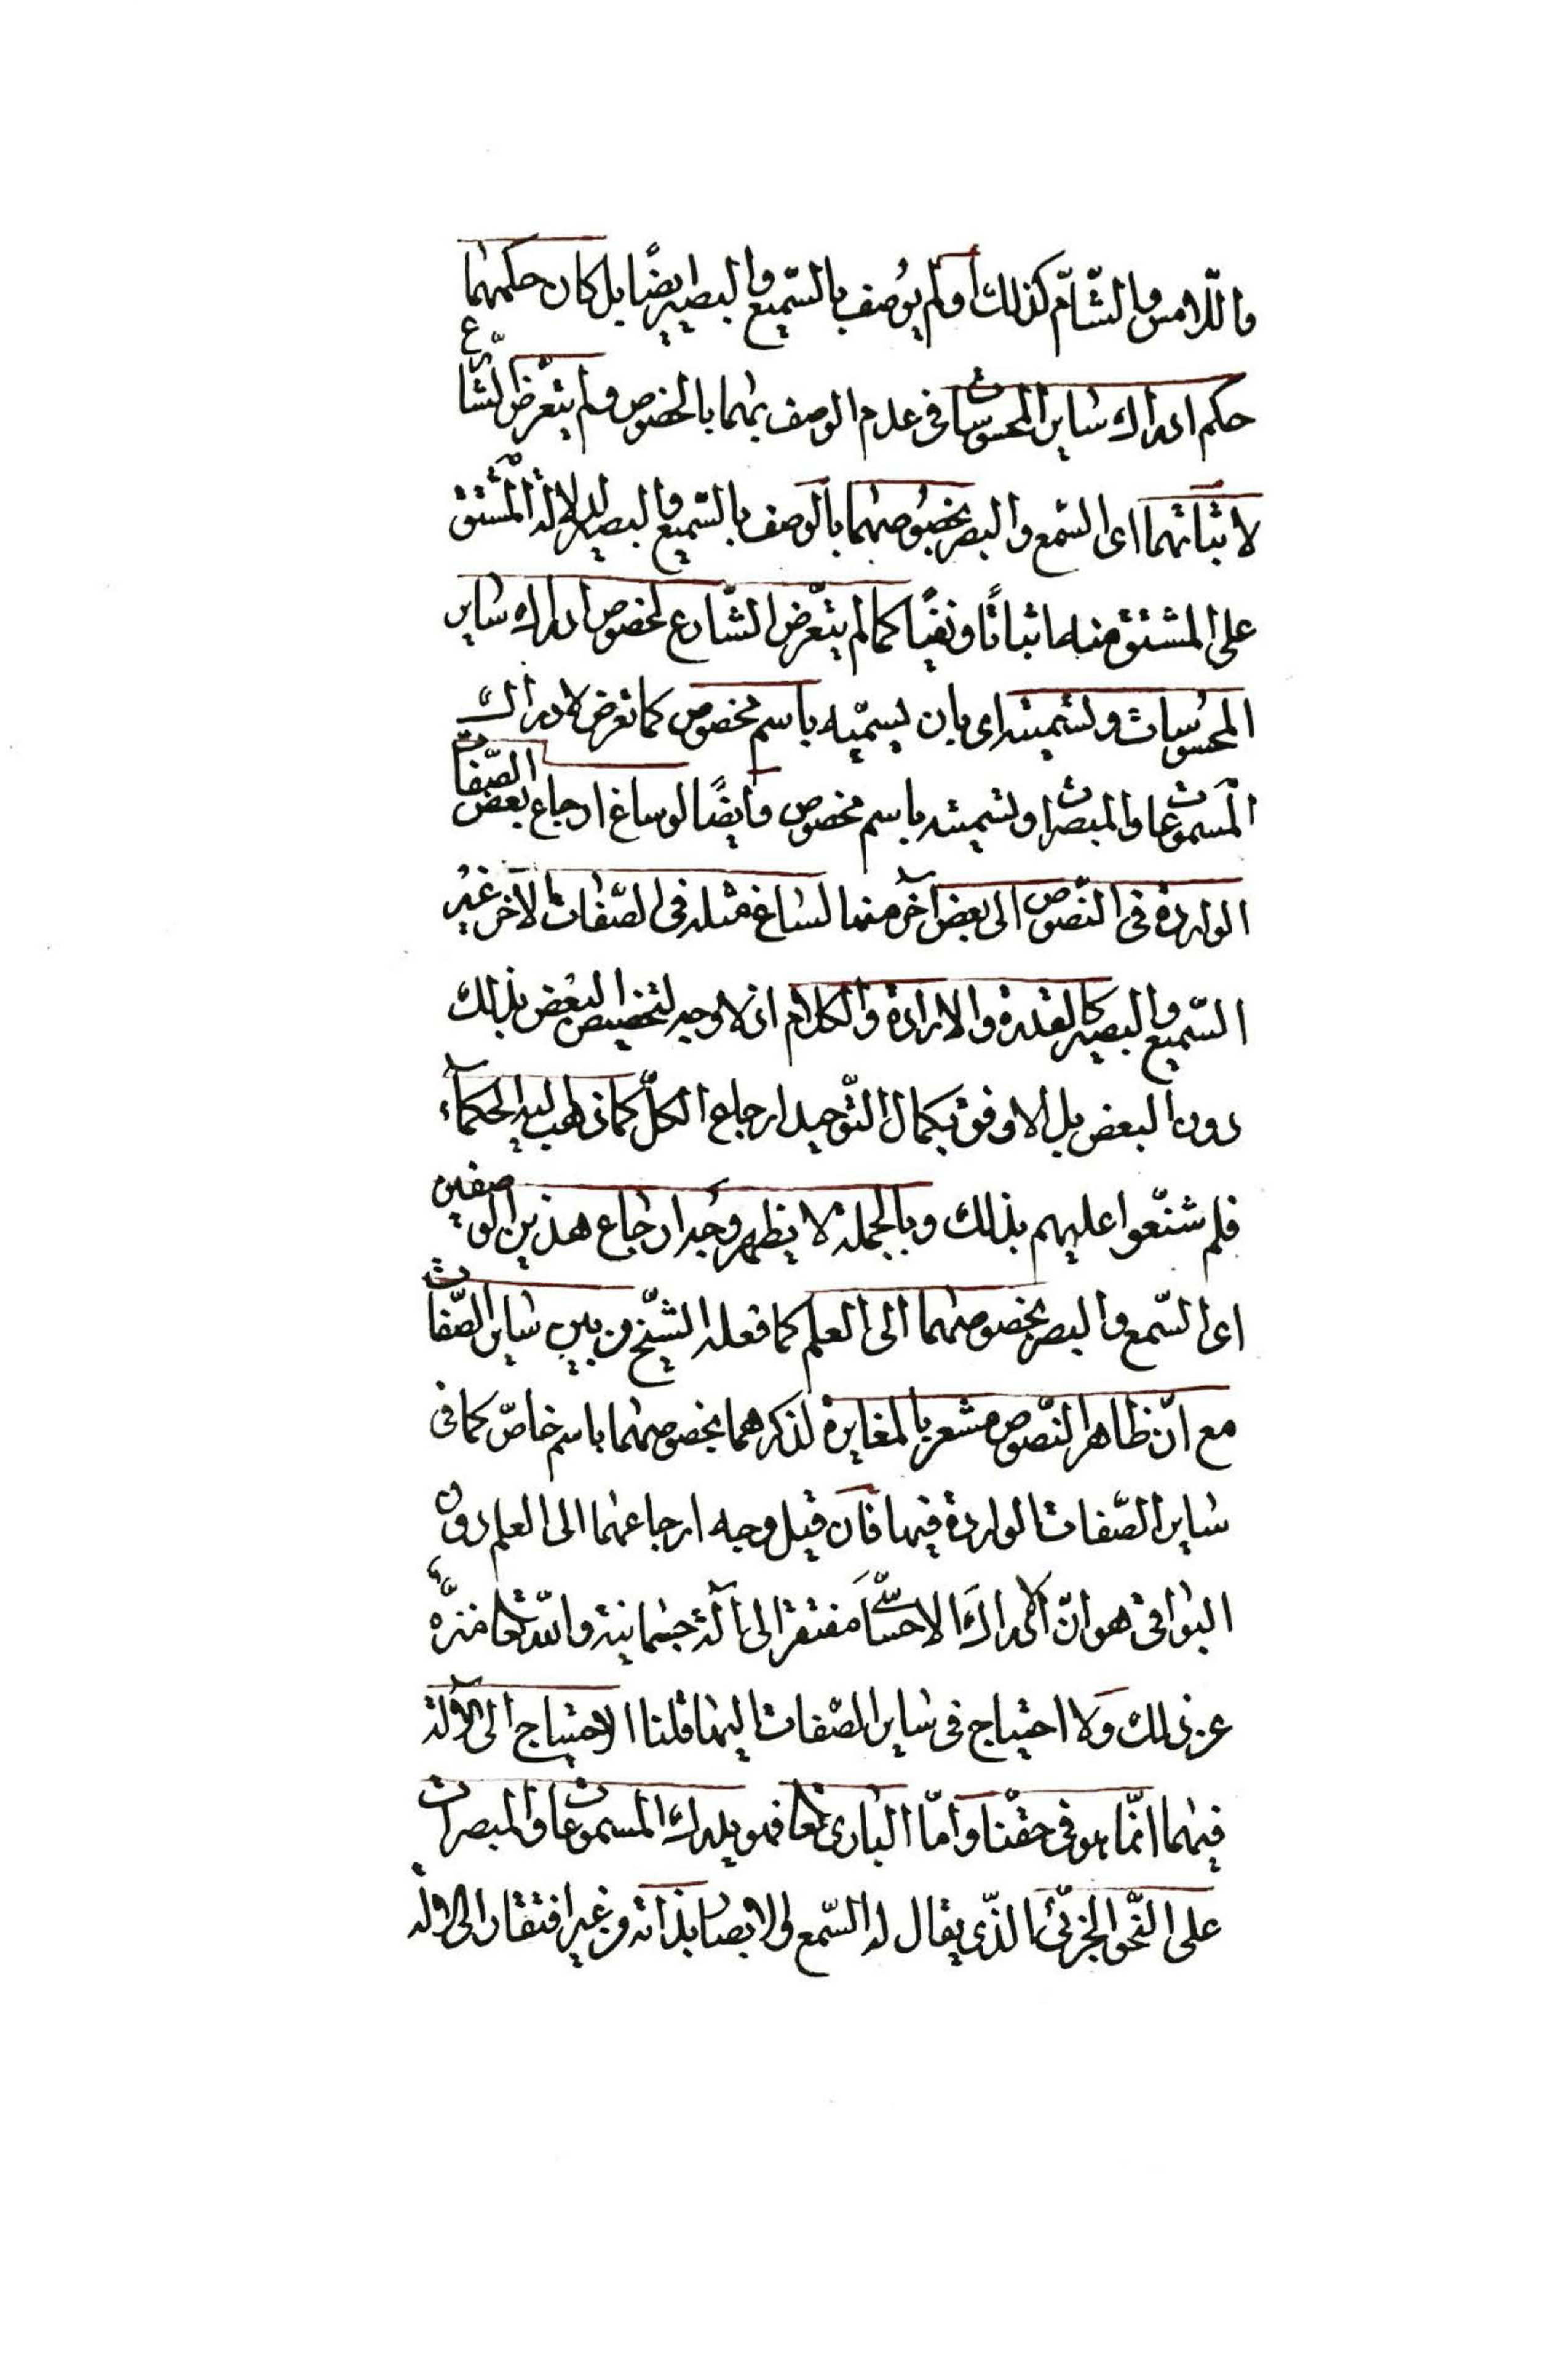 واللّامس والشّامّ كذلك اولم يوصف بالسّميع والبصير ايضًا بل كان حكمهما
حكم ادراك ساير المحسوسات فى عدم الوصف بهما بالخصوص ولم يتعرّض الشّارع
لاثباتهما اى السّمع والبصر بخصوصهما بالوصف بالسّميع والبصير لدلالة المشتق
على المشتق منه اثباتًا ونفيًا كما لم يتعرّض الشّارع لخصوص ادراك ساير
المحسوسات وتسميته اى بان يسمّيه باسم مخصوص كما تعرض لادراك
المسموعات والمبصرات وتسميته باسم مخصوص وايضًا لو ساغ ارجاع بعض الصّفات
الواردة فى النّصوص الى بعض آخر منها لساغ مثله فى الصّفات الآخر غير
السّميع والبصير كالقدرة والارادة والكلام اذ لا وجه لتخصيص البعض بذلك
دون البعض بل الاوفق بكمال التّوحيد ارجاع الكلّ كما ذهب اليه الحكماء
فلم شنّعوا عليهم بذلك وبالجملة لا يظهر وجه ارجاع هذين الوصفين
اى السّمع والبصر بخصوصهما الى العلم كما فعله الشّيخ من بين ساير الصّفات
مع انّ ظاهر النّصوص مشعر بالمغايرة لذكرهما بخصوصهما باسم خاصّ كما فى
ساير الصّفات الواردة فيها فان قيل وجه ارجاعهما الى العلم دون
البواقى هو انّ الادراك الاحساسّى مفتقر الى آلة جسمانية واللّه تعا منزّه
عن ذلك ولا احتياج فى ساير الصّفات اليها قلنا الاحتياج الى الآلة
فيهما انّما هو فى حقّنا وامّا البارى تعا فهو يدرك المسموعات والمبصرات
على النّحو الجزئى الذّى يقال له السّمع والابصار بذاته من غير افتقار الى الآلة